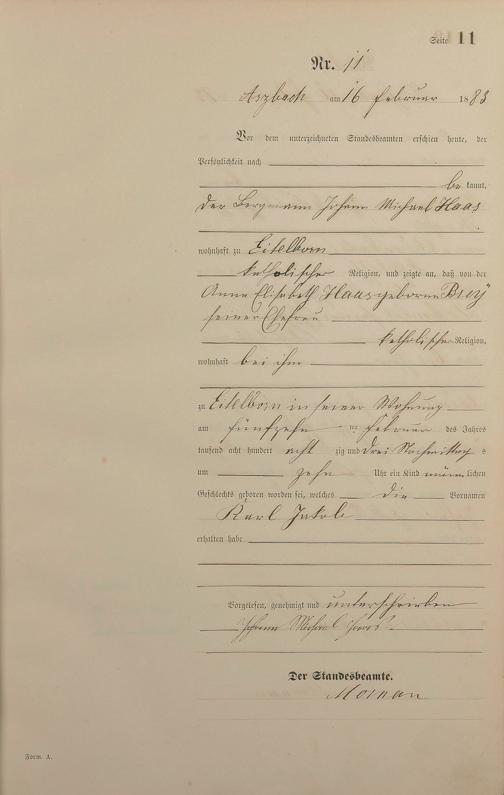 Seite 11
Nr. 11
Arzbach am 16 Februar 1883
Vor dem unterzeichneten Standesbeamten erschien heute, der
Persönlichkeit nach
be kannt,
der Bergmann Johann Michael Haas
wohnhaft zu Eitelborn
katholischer Religion, und zeigte an, daß von der
Anna Elisabeth Haas geborene Brey
seiner Ehefrau
katholischer Religion,
wohnhaft bei ihm
zu Eitelborn in seiner Wohnung
am fünfzehn ten Februar des Jahres
tausend acht hundert acht zig und drei Nachmittag s
um zehn Uhr ein Kind männ lichen
Geschlechts geboren worden sei, welches die Vornamen
Karl Jakob
erhalten habe
Vorgelesen, genehmigt und unterschrieben
Johann Michael Haas
Der Standesbeamte.
Form. A.